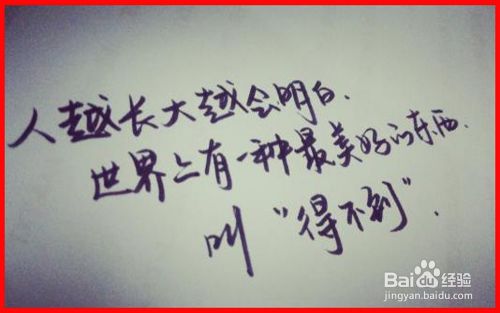 人越长大越会明白.
世界上有一种最美好的东西.
叫“得不到”.
Baidu经验
jingyan.baidu.com